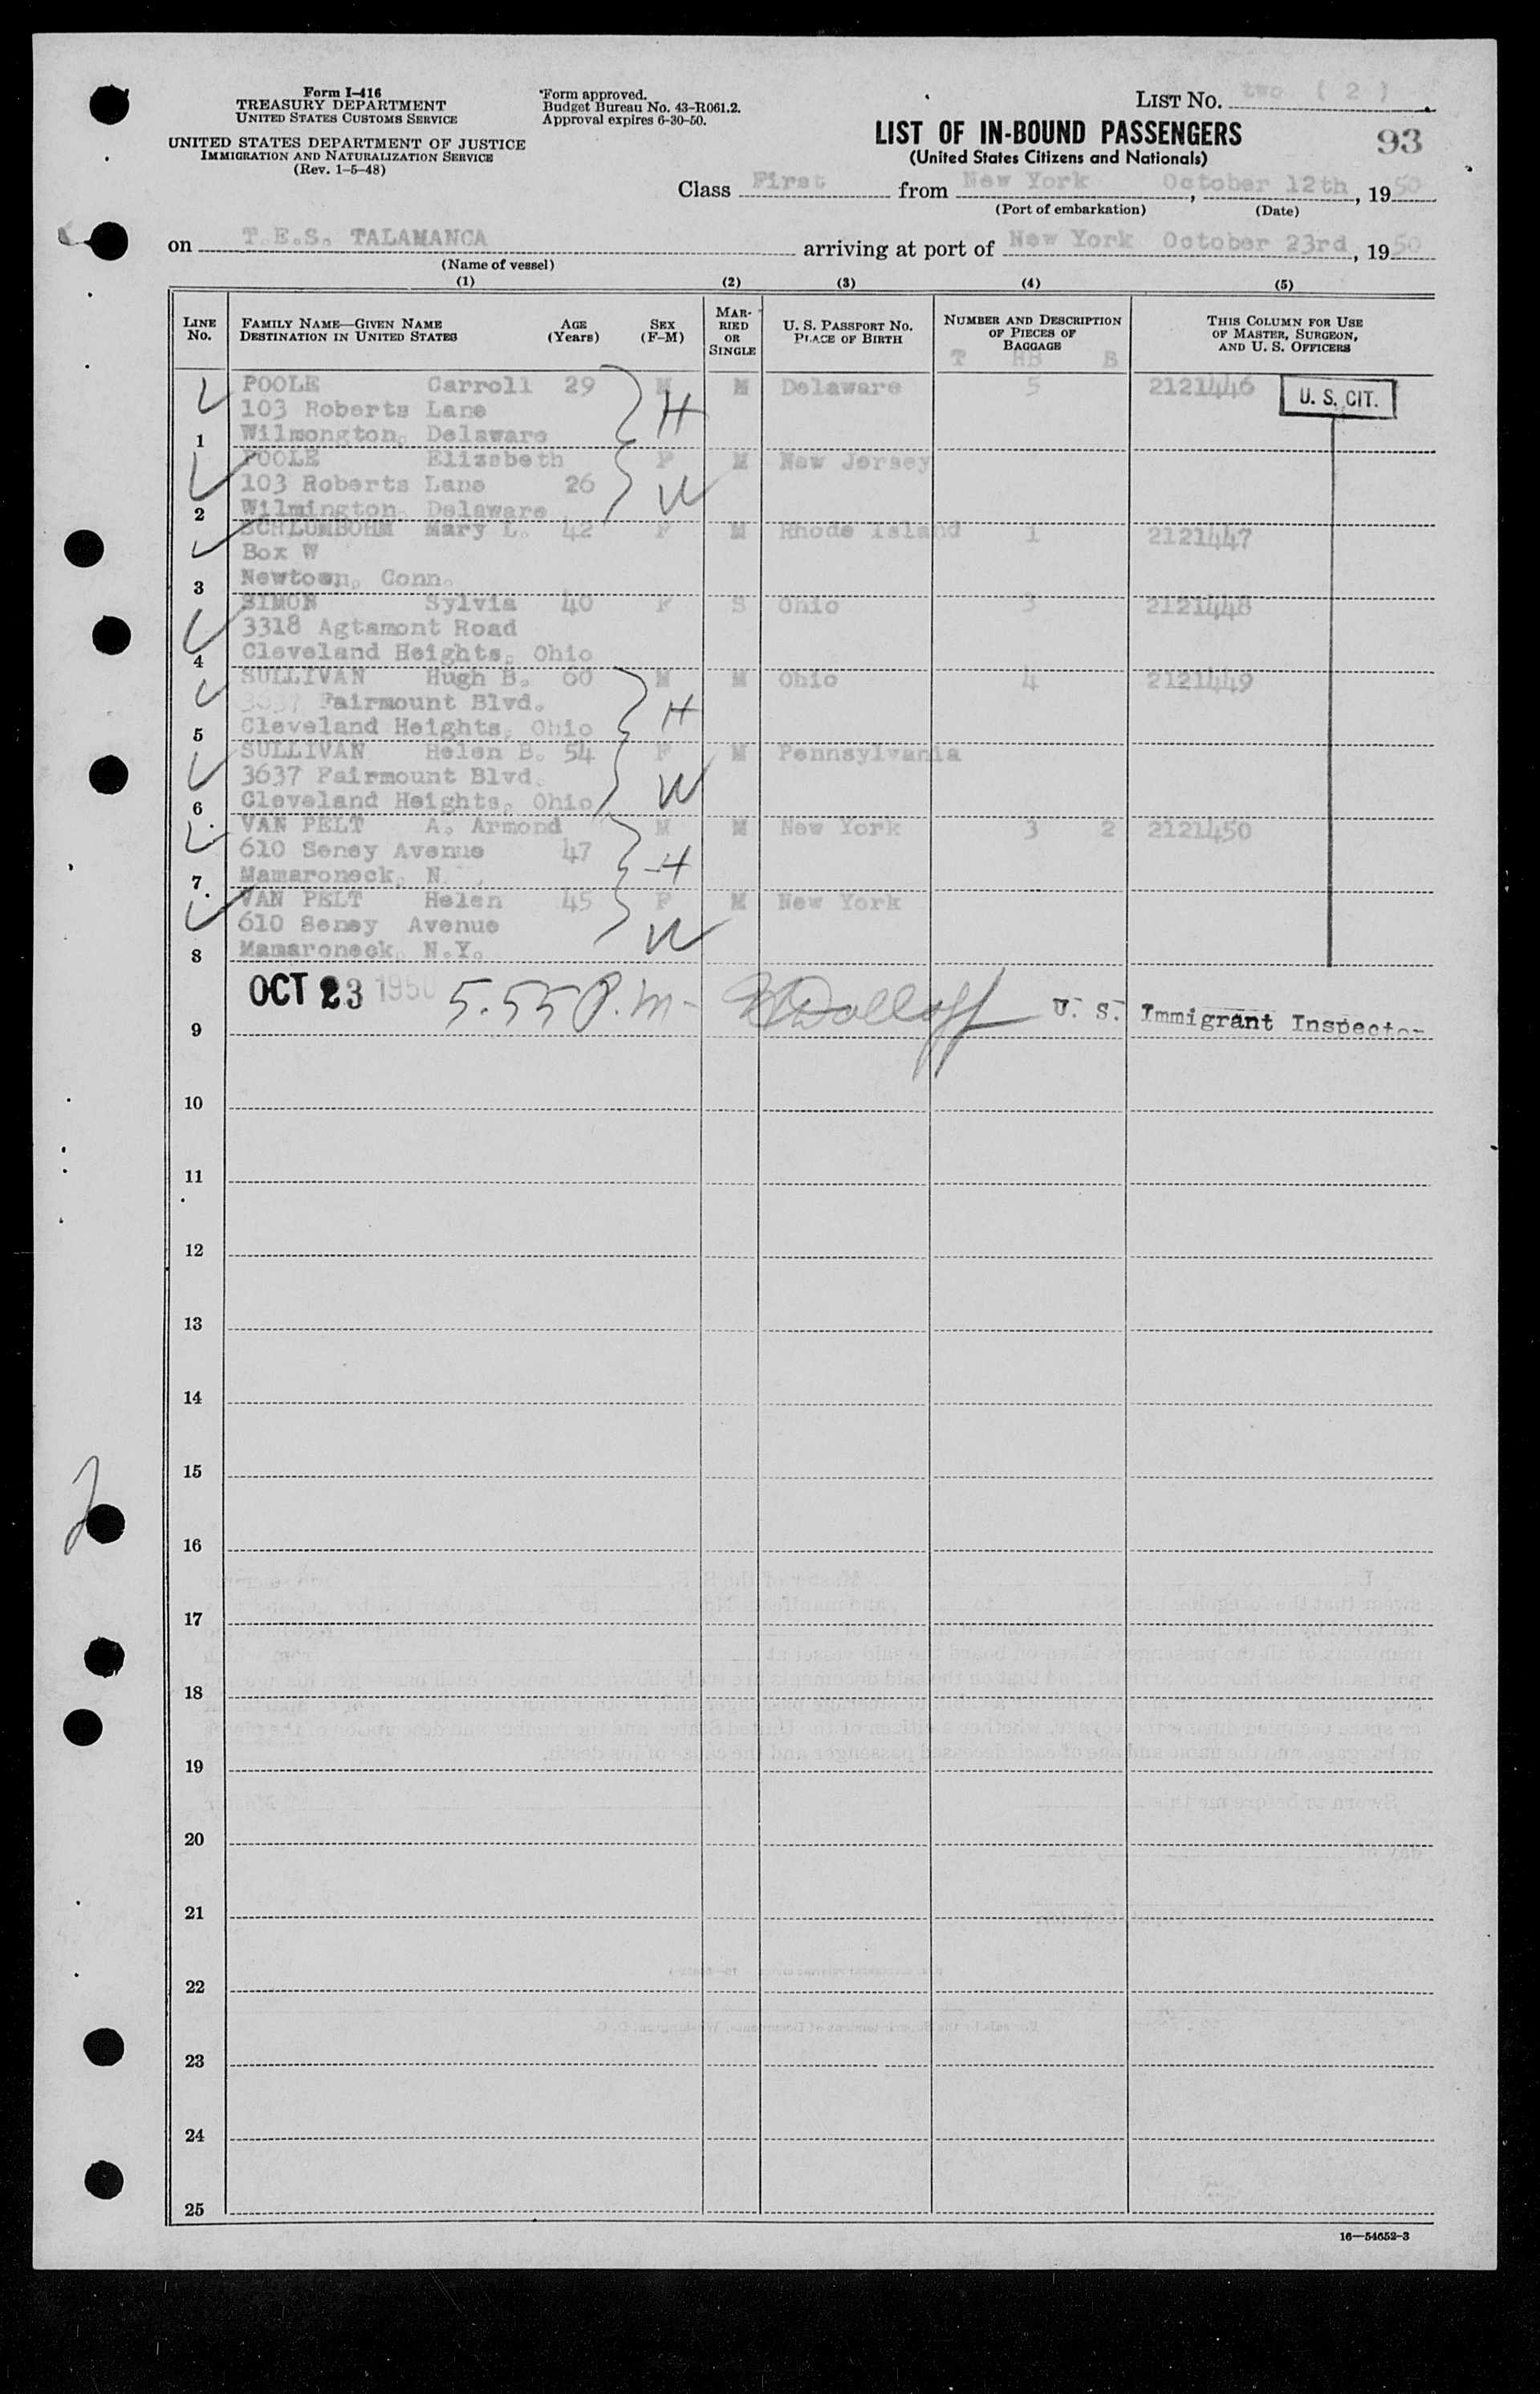 Form I-416
TREASURY DEPARTMENT
UNITED STATES CUSTOMS SERVICE
UNITED STATES DEPARTMENT OF JUSTICE
IMMIGRATION AND NATURALIZATION SERVICE
(Rev. 1-5-48)
Form approved.
Budget Bureau No. 43-R061.2.
Approval expires 6-30-50.
LIST NO. two ( 2 )
LIST OF IN-BOUND PASSENGERS
(United States Citizens and Nationals)
93
Class First from New York, October 12th, 1950
(Port of embarkation) (Date)
on T.E.S. TALAMANCA arriving at port of New York October 23rd, 1950
(Name of vessel)
(1) (2) (3) (4) (5)
LINE NO. FAMILY NAME—GIVEN NAME DESTINATION IN UNITED STATES AGE (Years) SEX (F-M) MARRIED OR SINGLE U. S. PASSPORT NO. PLACE OF BIRTH NUMBER AND DESCRIPTION OF PIECES OF BAGGAGE THIS COLUMN FOR USE OF MASTER, SURGEON, AND U. S. OFFICERS
T HB B
POOLE Carroll 29 M M Delaware 5 2121446 U. S. CIT.
103 Roberts Lane H
1 Wilmongton, Delaware
POOLE Elizabeth F M New Jersey
103 Roberts Lane 26 W
2 Wilmington, Delaware
SCHLUMBOHM Mary L. 42 F M Rhode Island 1 2121447
Box W
3 Newtown, Conn.
SIMON Sylvia 40 F S Ohio 3 2121448
3318 Agtamont Road
4 Cleveland Heights, Ohio
SULLIVAN Hugh B. 60 M M Ohio 4 2121449
3637 Fairmount Blvd. H
5 Cleveland Heights, Ohio
SULLIVAN Helen B. 54 F M Pennsylvania
3637 Fairmount Blvd. W
6 Cleveland Heights, Ohio
VAN PELT A. Armond M M New York 3 2 2121450
610 Seney Avenue 47 H
7 Mamaroneck, N.
VAN PELT Helen 45 F M New York
610 Seney Avenue W
8 Mamaroneck, N.Y.
OCT 23 1950 5.55 P.m- Dolloff U. S. Immigrant Inspector
9
10
11
12
13
14
15
2
16
17
18
19
20
21
22
23
24
25
16—54652-3